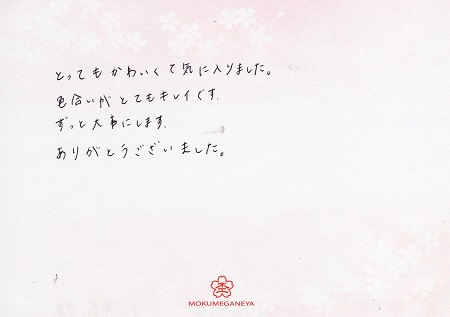 とってもかわいくて気に入りました。
色合いがとてもキレイです.
ずっと大事にします.
ありがとうございました。
MOKUMEGANEYA